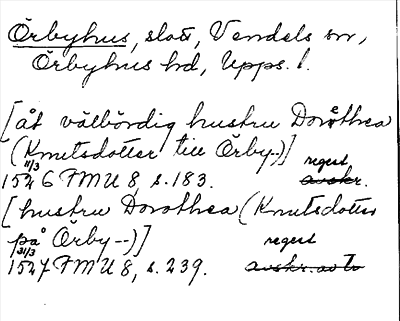 Örbyhus, slott, Vendels sn,
Örbyhus hd, Upps. l.
[åt välbördig hustru Dorothea
(Knutsdotter till Örby--)]
11/3 regest
1526 FMU 8, s. 183. avskr.
[hustru Dorothea (Knutsdotter
på Örby--)] regest
31/3
1527 FMU 8, s. 239. avskr. av To